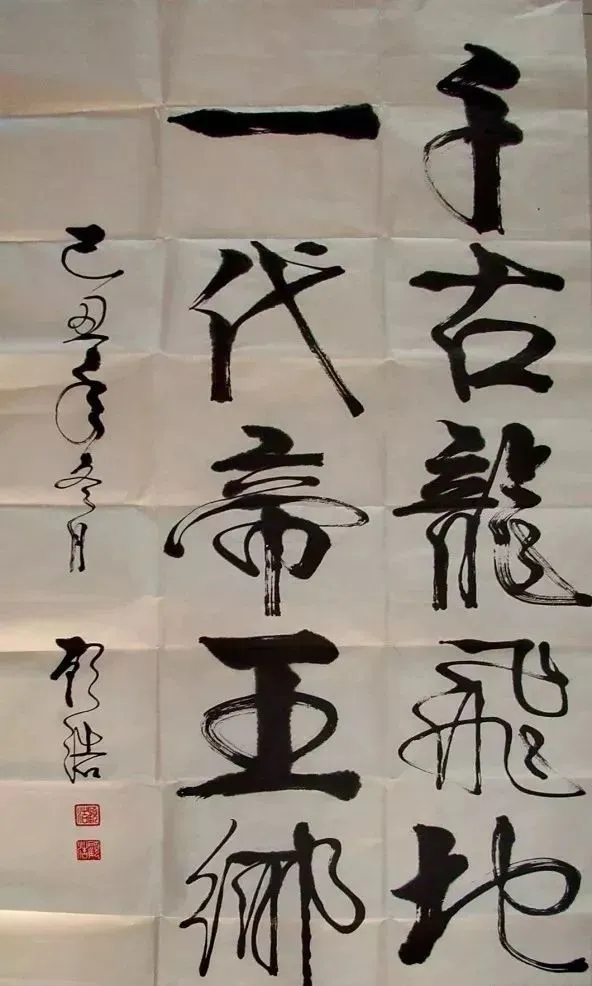 千古龍飛地
一代帝王鄉
己丑年冬月